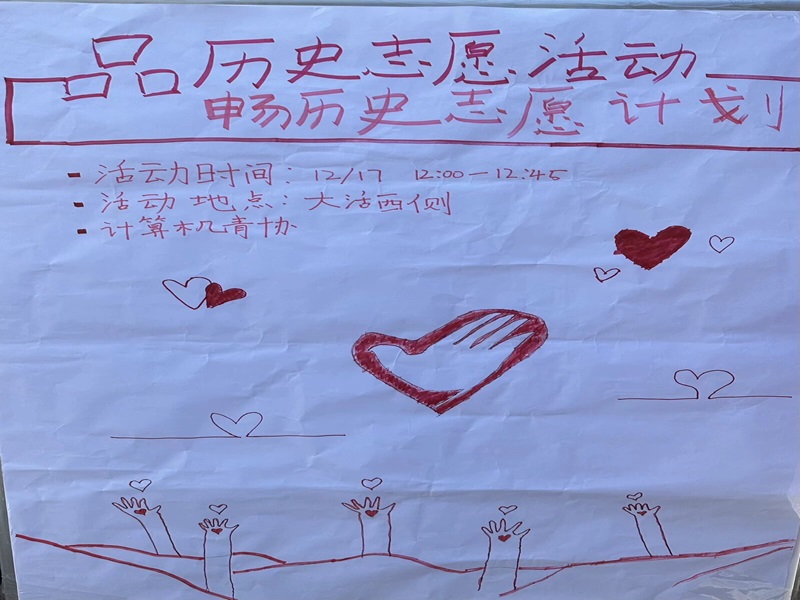 品历史志愿活动
畅历史志愿计划
- 活动时间: 12/17 12:00-12:45
- 活动地点: 大活西侧
- 计算机青协